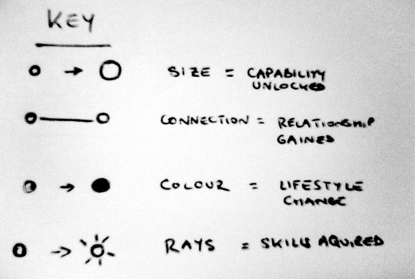 KEY
SIZE = CAPABILITY
UNLOCKED
CONNECTION = RELATIONSHIP
GAINED
COLOUR = LIFESTYLE
CHANGE
RAYS = SKILLS AQUIRED